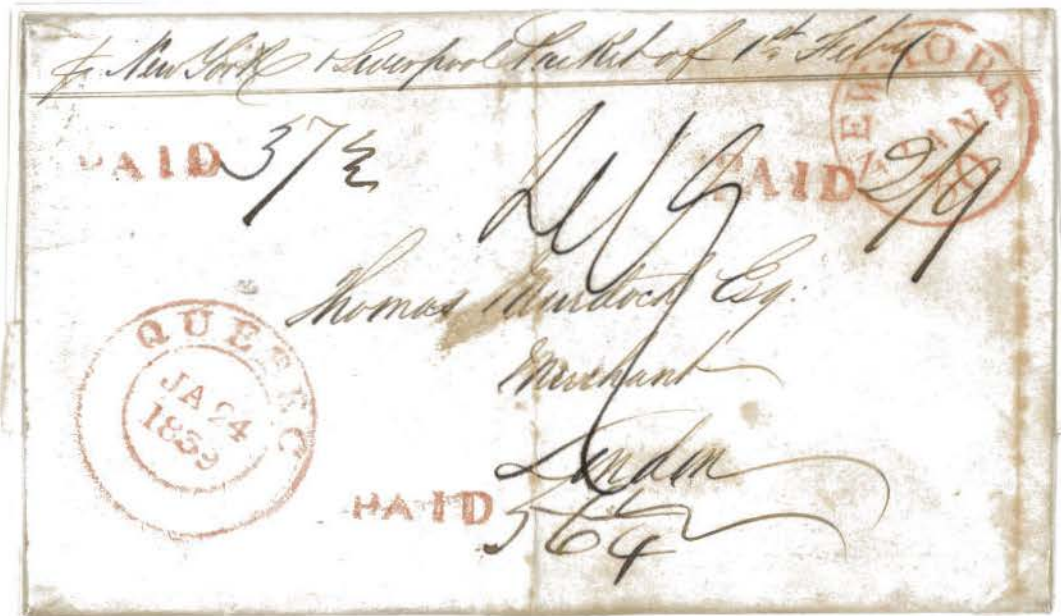 pr New York & Liverpool Packet of 1st Feby
NEW YORK
JAN
30
PAID 37½
PAID 2/9
Thomas Murdoch Esq:
Merchant
London
QUEBEC
JA 24
1839
PAID